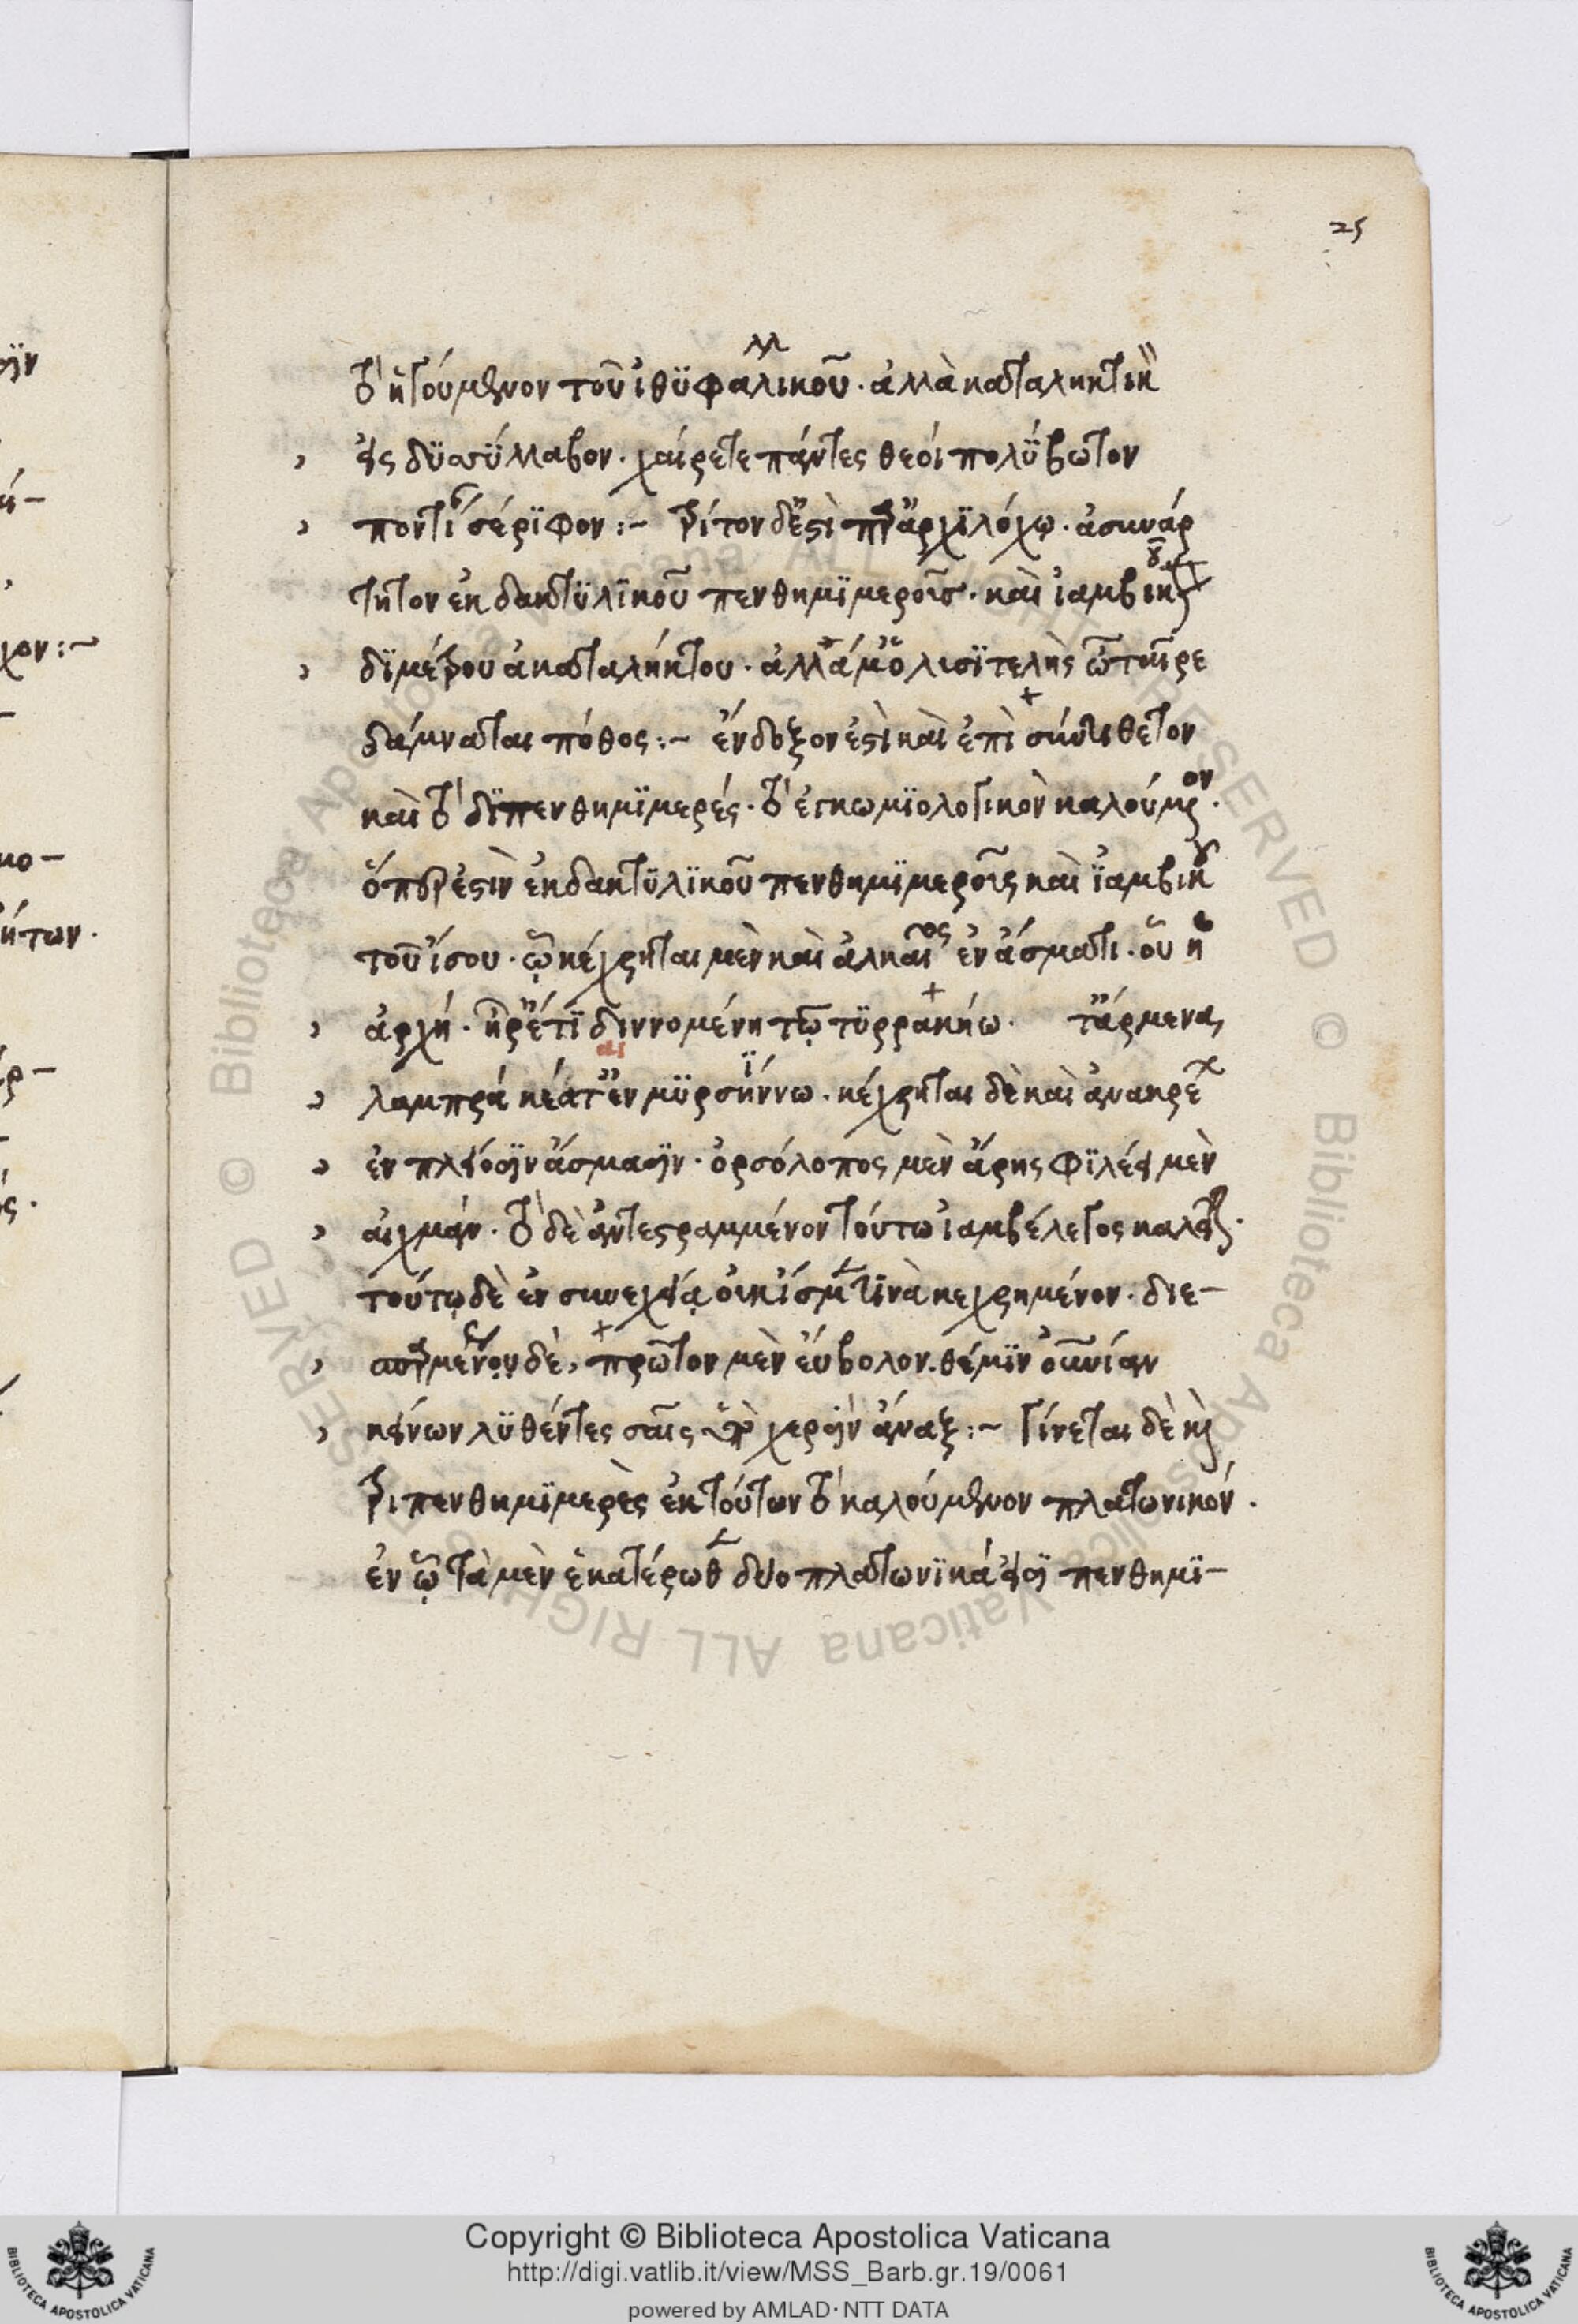 25
τὸ ἡγούμενον τοῦ ἰθϋφαλλικοῦ. ἀλλὰ καταληκτικὴ
εἰς δϋσϋλλαβον. χαίρετε πάντες θεοί πολΰβωτον
ποντίου σέρϊφον :~ τρίτον δ' ἐστὶ παρ' ἀρχϊλόχω. ἀσυνάρ
τητον ἐκ δακτϋλϊκοῦ πενθημϊμεροῦς. καὶ ἰαμβικοῦ
δϊμέτρου ἀκαταλήκτου. ἀλλά μ' ὁ λυσϊτελὴς ὦ 'ταῖρε
δάμναται πόθος :~ ἔνδοξον ἐστὶ καὶ ἐπὶ σύντιθετον
καὶ τὸ δϊπενθημϊμερές. τὸ ἐγκωμϊολογικὸν καλούμενον.
ὅπερ ἐστὶν ἐκ δακτϋλϊκοῦ πενθημϊμεροῦς καὶ ἰαμβικοῦ
τοῦ ἴσου. ᾧ κέχρηται μὲν καὶ ἀλκαῖος ἐν ἄσματι. οὗ ἡ
ἀρχή. ἦρ' ἔτϊ διννομένη τῷ τϋρρακήω. τἄρμενα
λαμπρά κέατ' ἐν μϋρσϊννω. κέχρηται δὲ καὶ ἀνακρέων
ἐν πλείοσϊν ἄσμασϊν. ὀρσόλοπος μὲν ἄρης φϊλέει μὲν
αἰχμάν. τὸ δὲ ἀντεστραμμένον τούτω ἰαμβέλεγος καλεῖται.
τούτῳ δὲ ἐν συνεχείᾳ οὐκ ἴσμεν τϊνὰ κεχρημένον. διε-
σπαρμένου δὲ, πρῶτον μὲν εὔβολον. θέμϊν οὐρανίαν
κείνων λϋθέντες σαῖς ὑπὸ χερσὶν ἄναξ :~ γίνεται δὲ καὶ
τριπενθημϊμερὲς ἐκ τούτων τὸ καλούμενον πλατωνικόν.
ἐν ᾧ τὰ μὲν ἑκατέρωθεν δύο πλατωνϊκά εἰσϊ πενθημϊ-
Copyright © Biblioteca Apostolica Vaticana
http://digi.vatlib.it/view/MSS_Barb.gr.19/0061
powered by AMLAD·NTT DATA